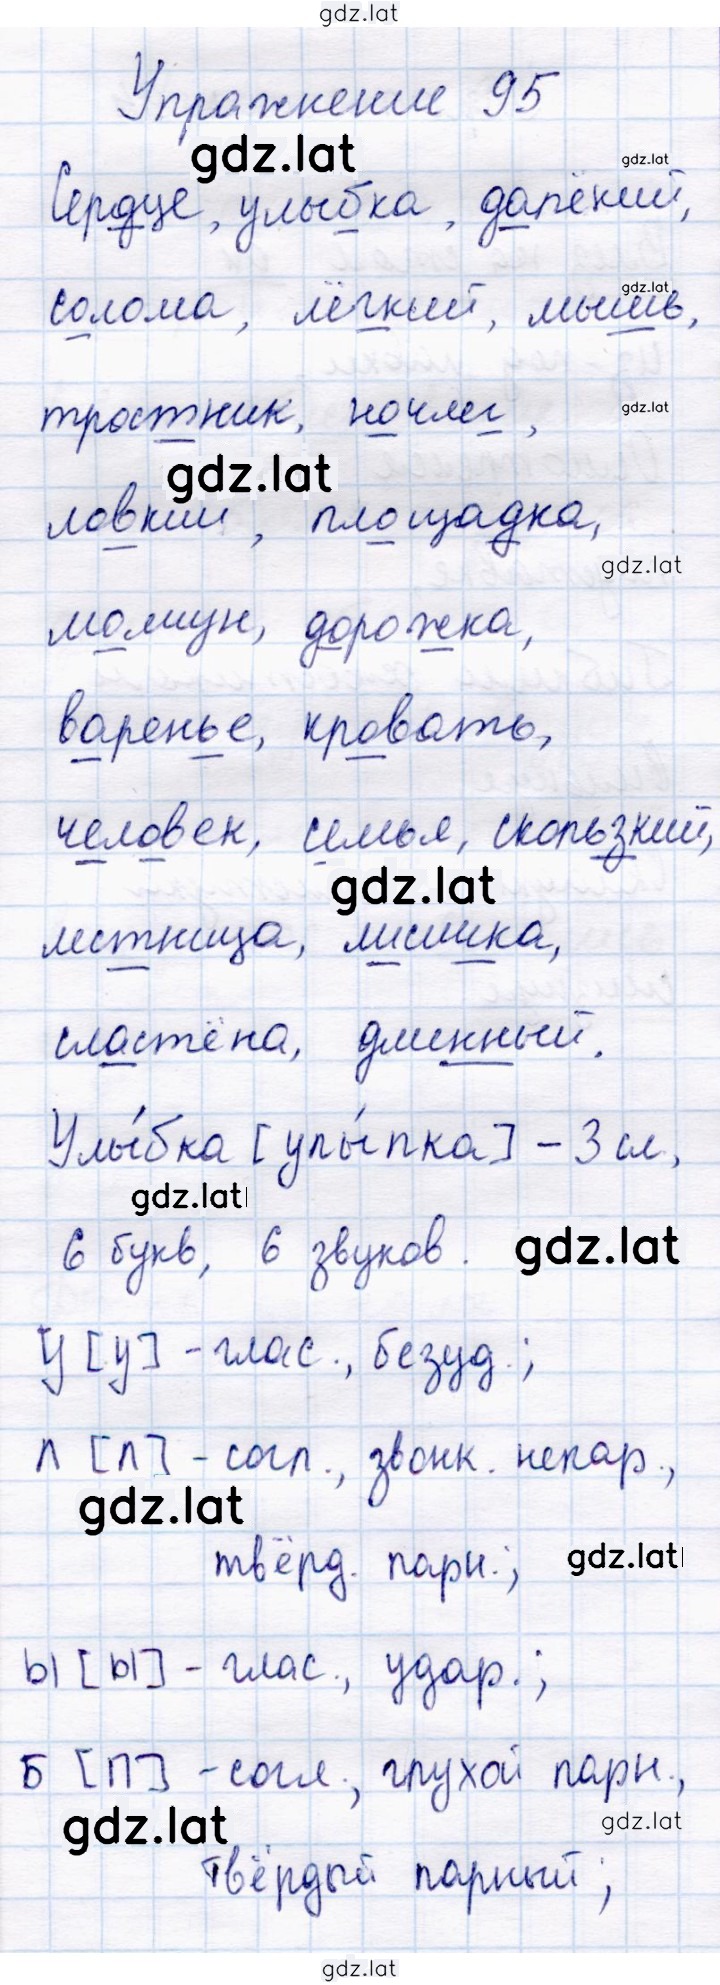 gdz.lat
Упражнение 95
gdz.lat
gdz.lat
Сердце, улыбка, далёкий,
gdz.lat
солома, лёгкий, мышь,
тростник, ночлег,
gdz.lat
gdz.lat
ловкий, площадка,
gdz.lat
молчун, дорожка,
варенье, кровать,
человек, семья, скользкий,
gdz.lat
лестница, лисичка,
сластёна, длинный.
Улы́бка [улы́пка] - 3 сл,
gdz.lat
6 букв, 6 звуков.
gdz.lat
у [у] - глас., безуд.;
л [л] - согл., звонк. непар.,
gdz.lat
твёрд. парн.;
gdz.lat
ы [ы] - глас., удар.;
б [п] - согл., глухой парн.,
gdz.lat
gdz.lat
твёрдый парный;
gdz.lat